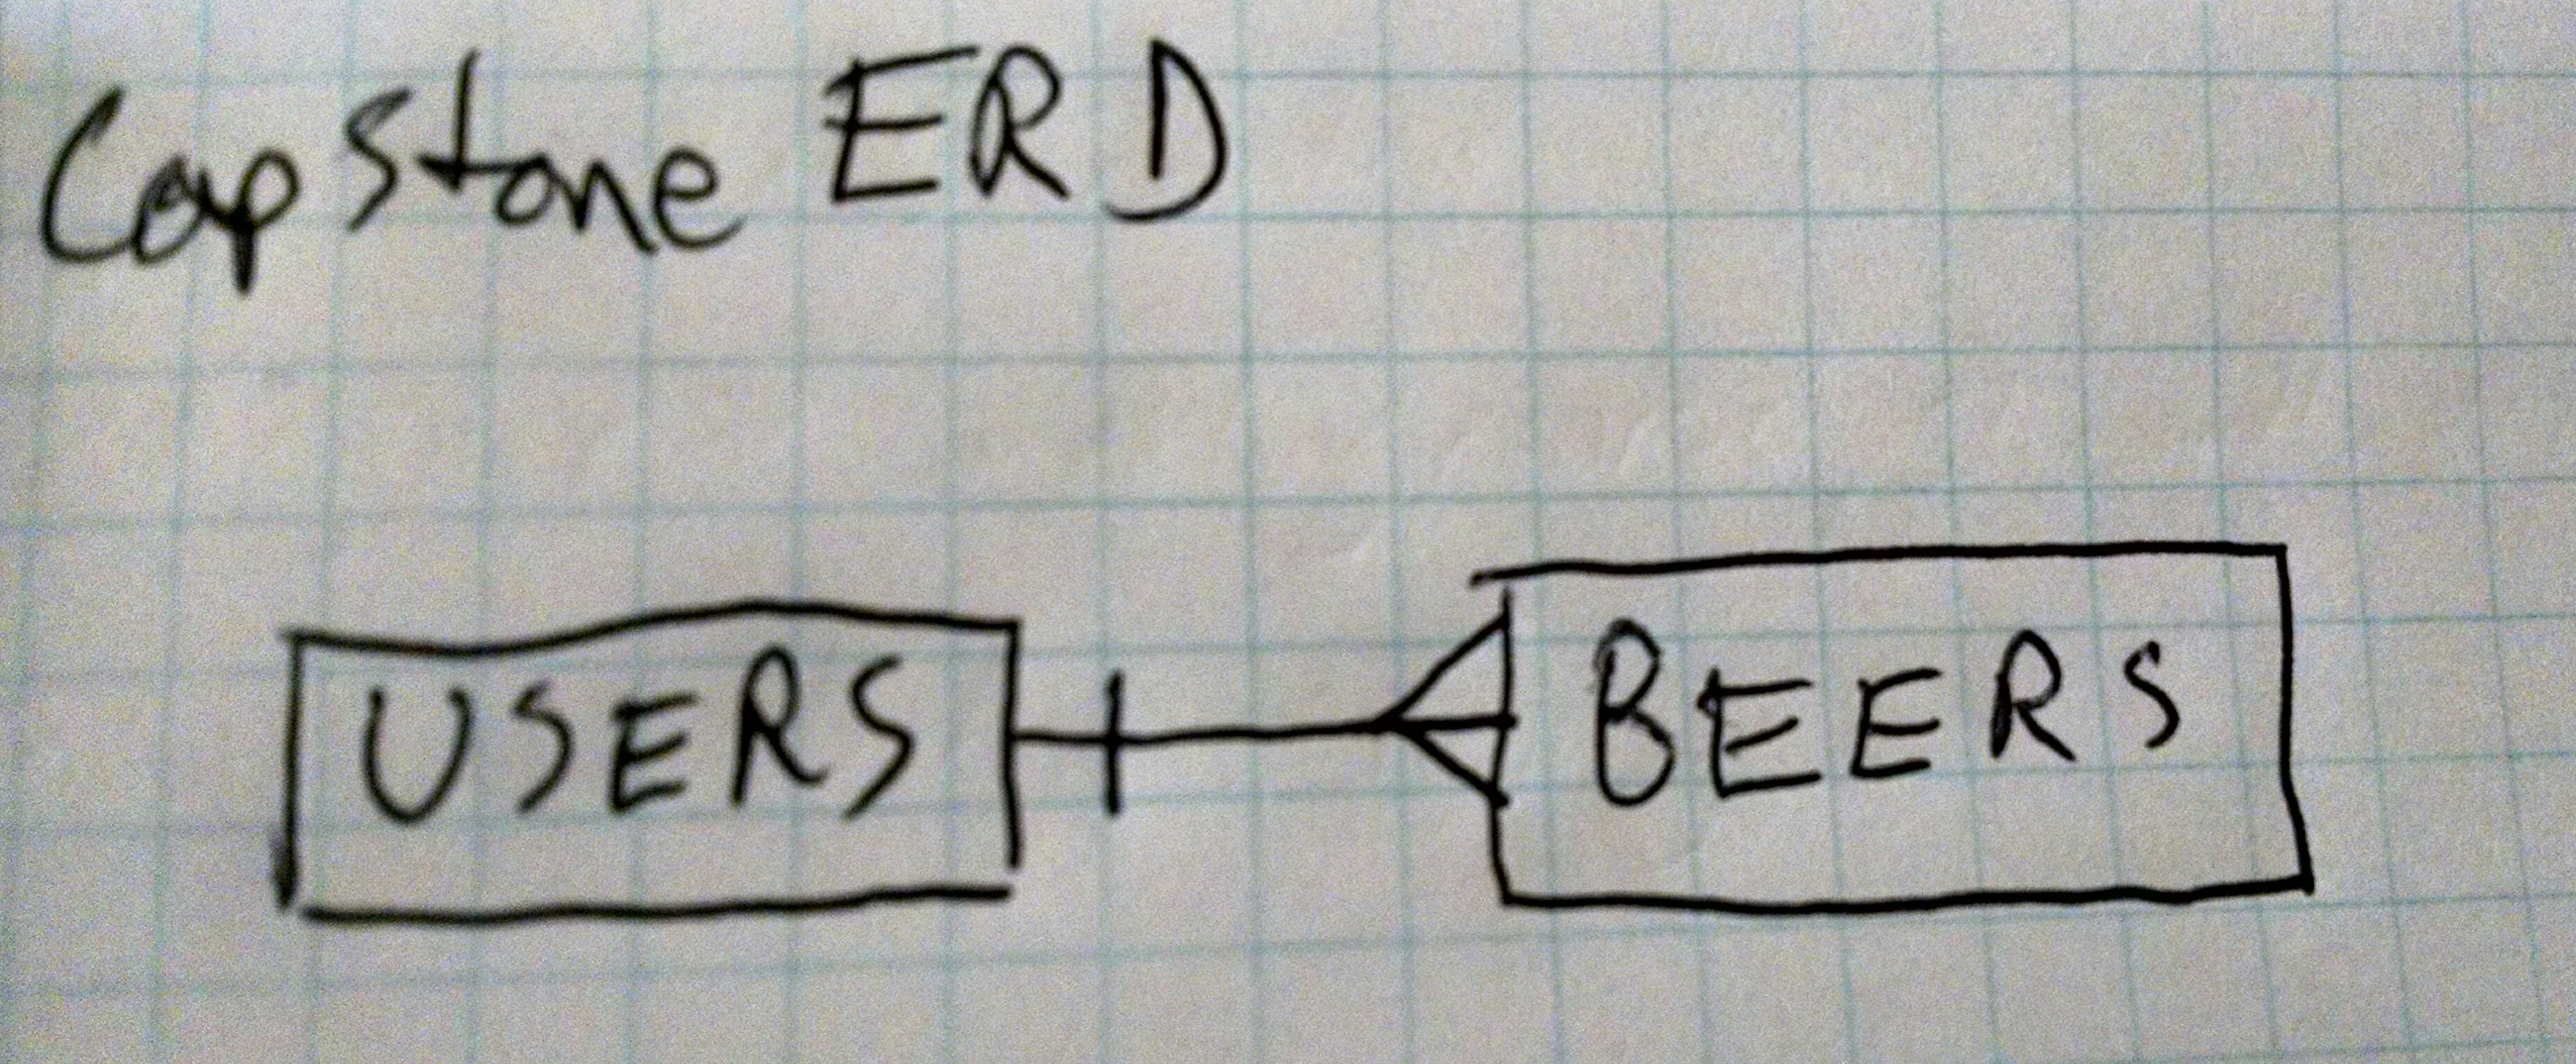 Capstone ERD
USERS BEERS